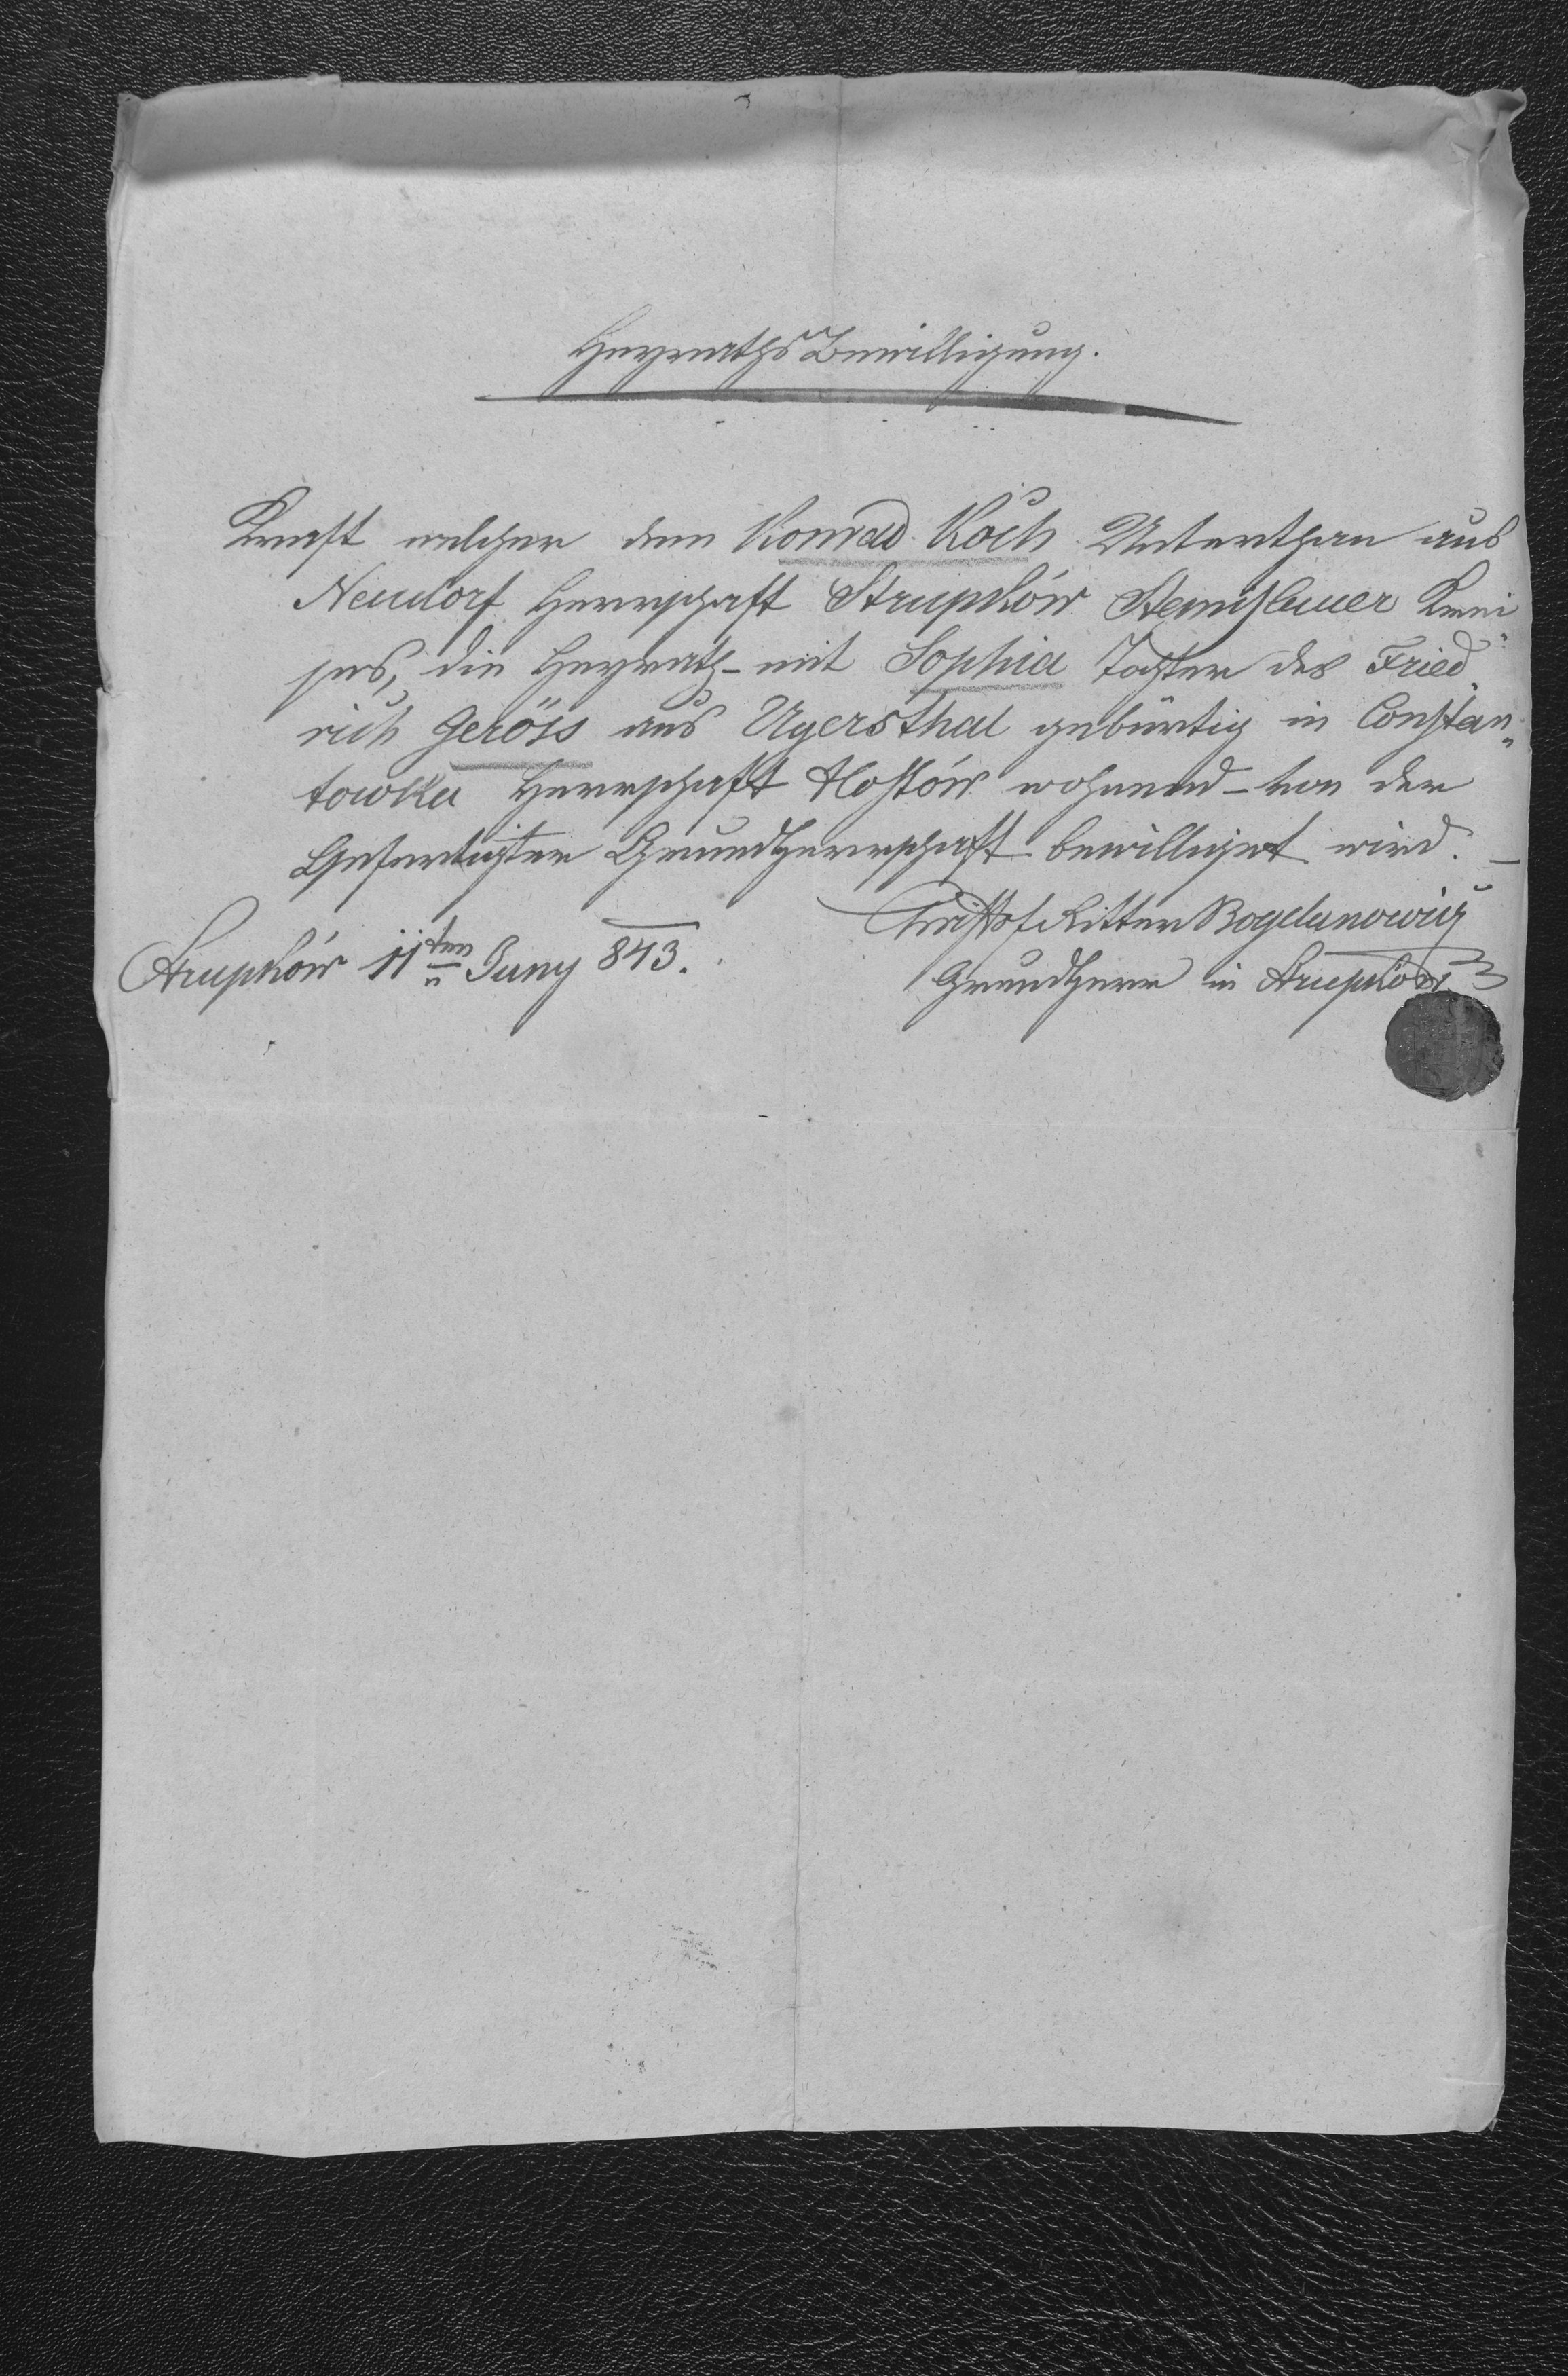 Heyraths Bewilligung.
Kraft welcher dem Konrad Koch Unterthan aus
Neudorf Herrschaft Strupków Stanislauer Krei
ses, die Heyrath - mit Sophia Tochter des Fried
rich Geröss aus Ugersthal gebürtig in Constan„
towka Herrschaft Hostów wohnend - von der
Gefertigten Grundherrschaft bewilliget wird. -
Strupków 11ten Juny 843.
Christof Ritter Bogdanowicz
Grundherr in Strupków